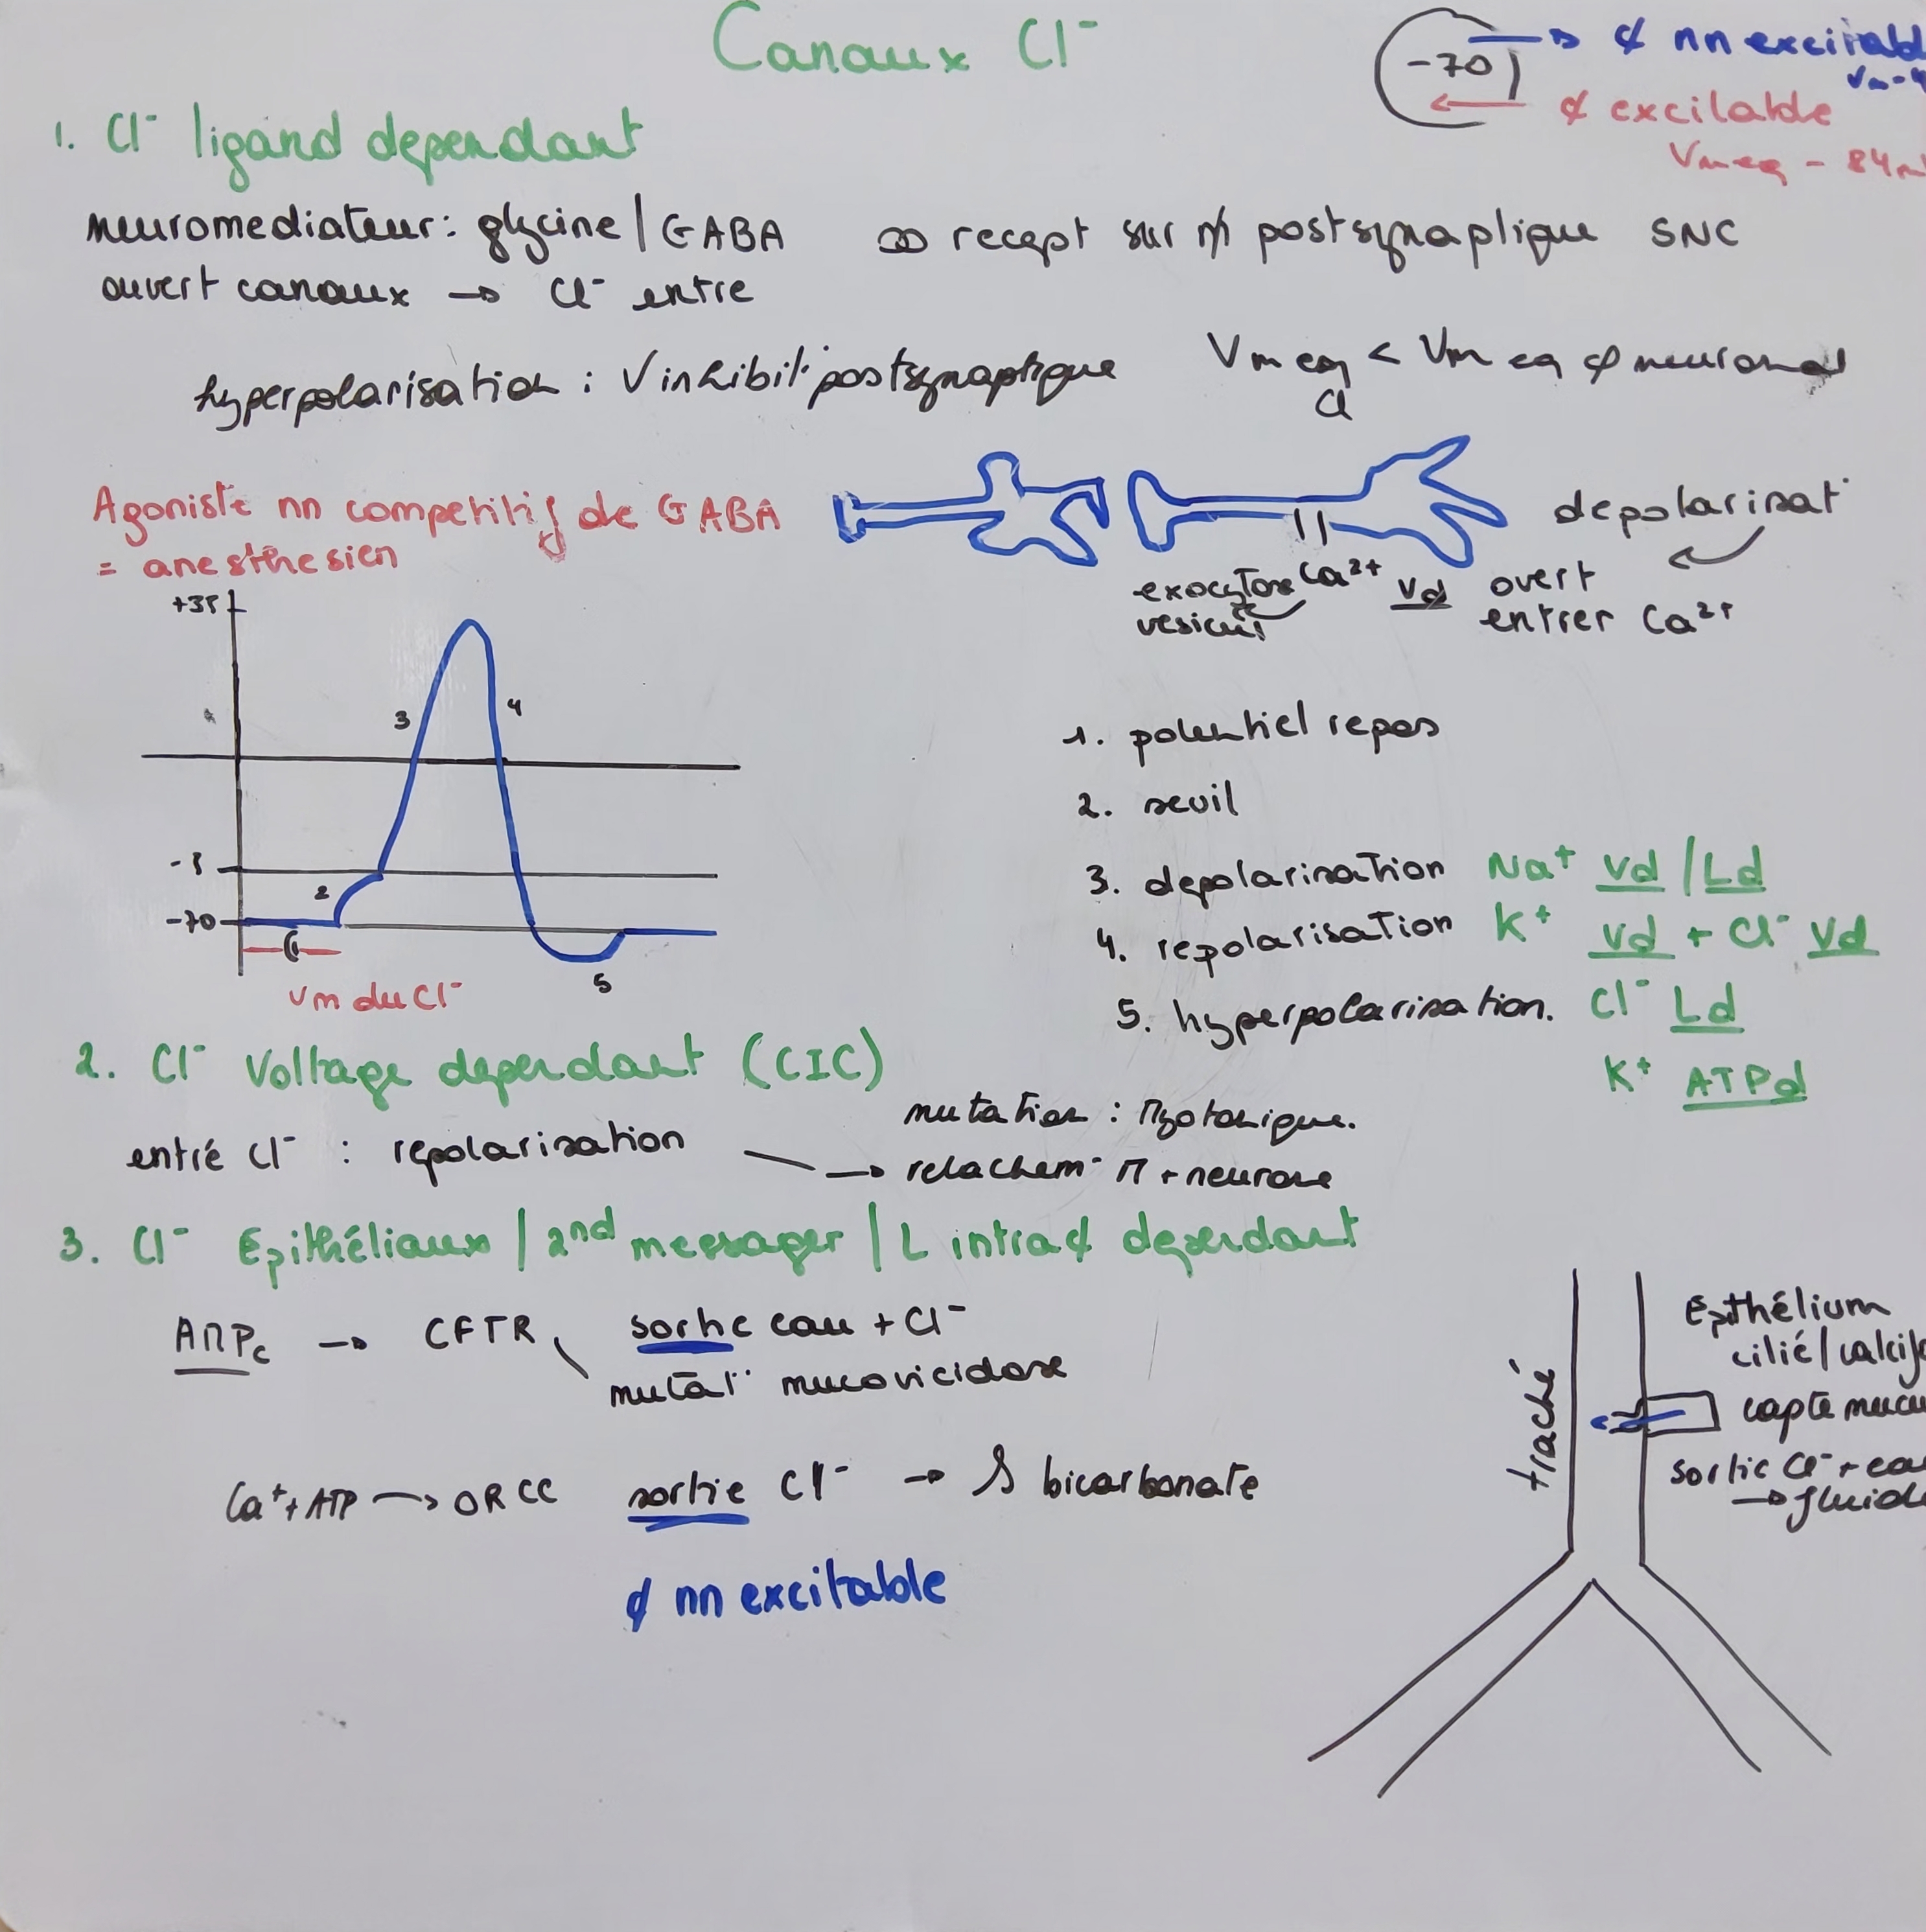 Canaux Cl⁻
-70
→ ¢ nn excitabl
Vm -4
← ¢ excitable
Vm eq - 84m
1. Cl⁻ ligand dependant
neuromediateur : glycine / GABA recept sur postsynaptique SNC
ouvert canaux → Cl⁻ entre
hyperpolarisation : V inhibit° postsynaptique
Vm eq < Vm eq ¢ neuronal
Cl
Agoniste nn competitif de GABA
= anesthesien
depolarisat°
exocytose Ca²⁺ Vd overt
vesicul entrer Ca²⁺
+35
3
4
2
-70
5
Vm du Cl⁻
1. potentiel repos
2. seuil
3. depolarisation Na⁺ Vd / Ld
4. repolarisation K⁺ Vd + Cl⁻ Vd
5. hyperpolarisation. Cl⁻ Ld
K⁺ ATPd
2. Cl⁻ Voltage dependant (ClC)
mutation : Myotonique.
entré Cl⁻ : repolarisation → relachem° M + neurone
3. Cl⁻ Epithéliaux / 2nd messager / L intra¢ dependant
AMPc → CFTR sortie eau + Cl⁻
mutat° mucovicidose
Ca⁺ + ATP → ORCC sortie Cl⁻ → S bicarbonate
¢ nn excitable
traché
Epithélium
cilié / calcif
capte mucu
sortie Cl⁻ + eau
→ fluid